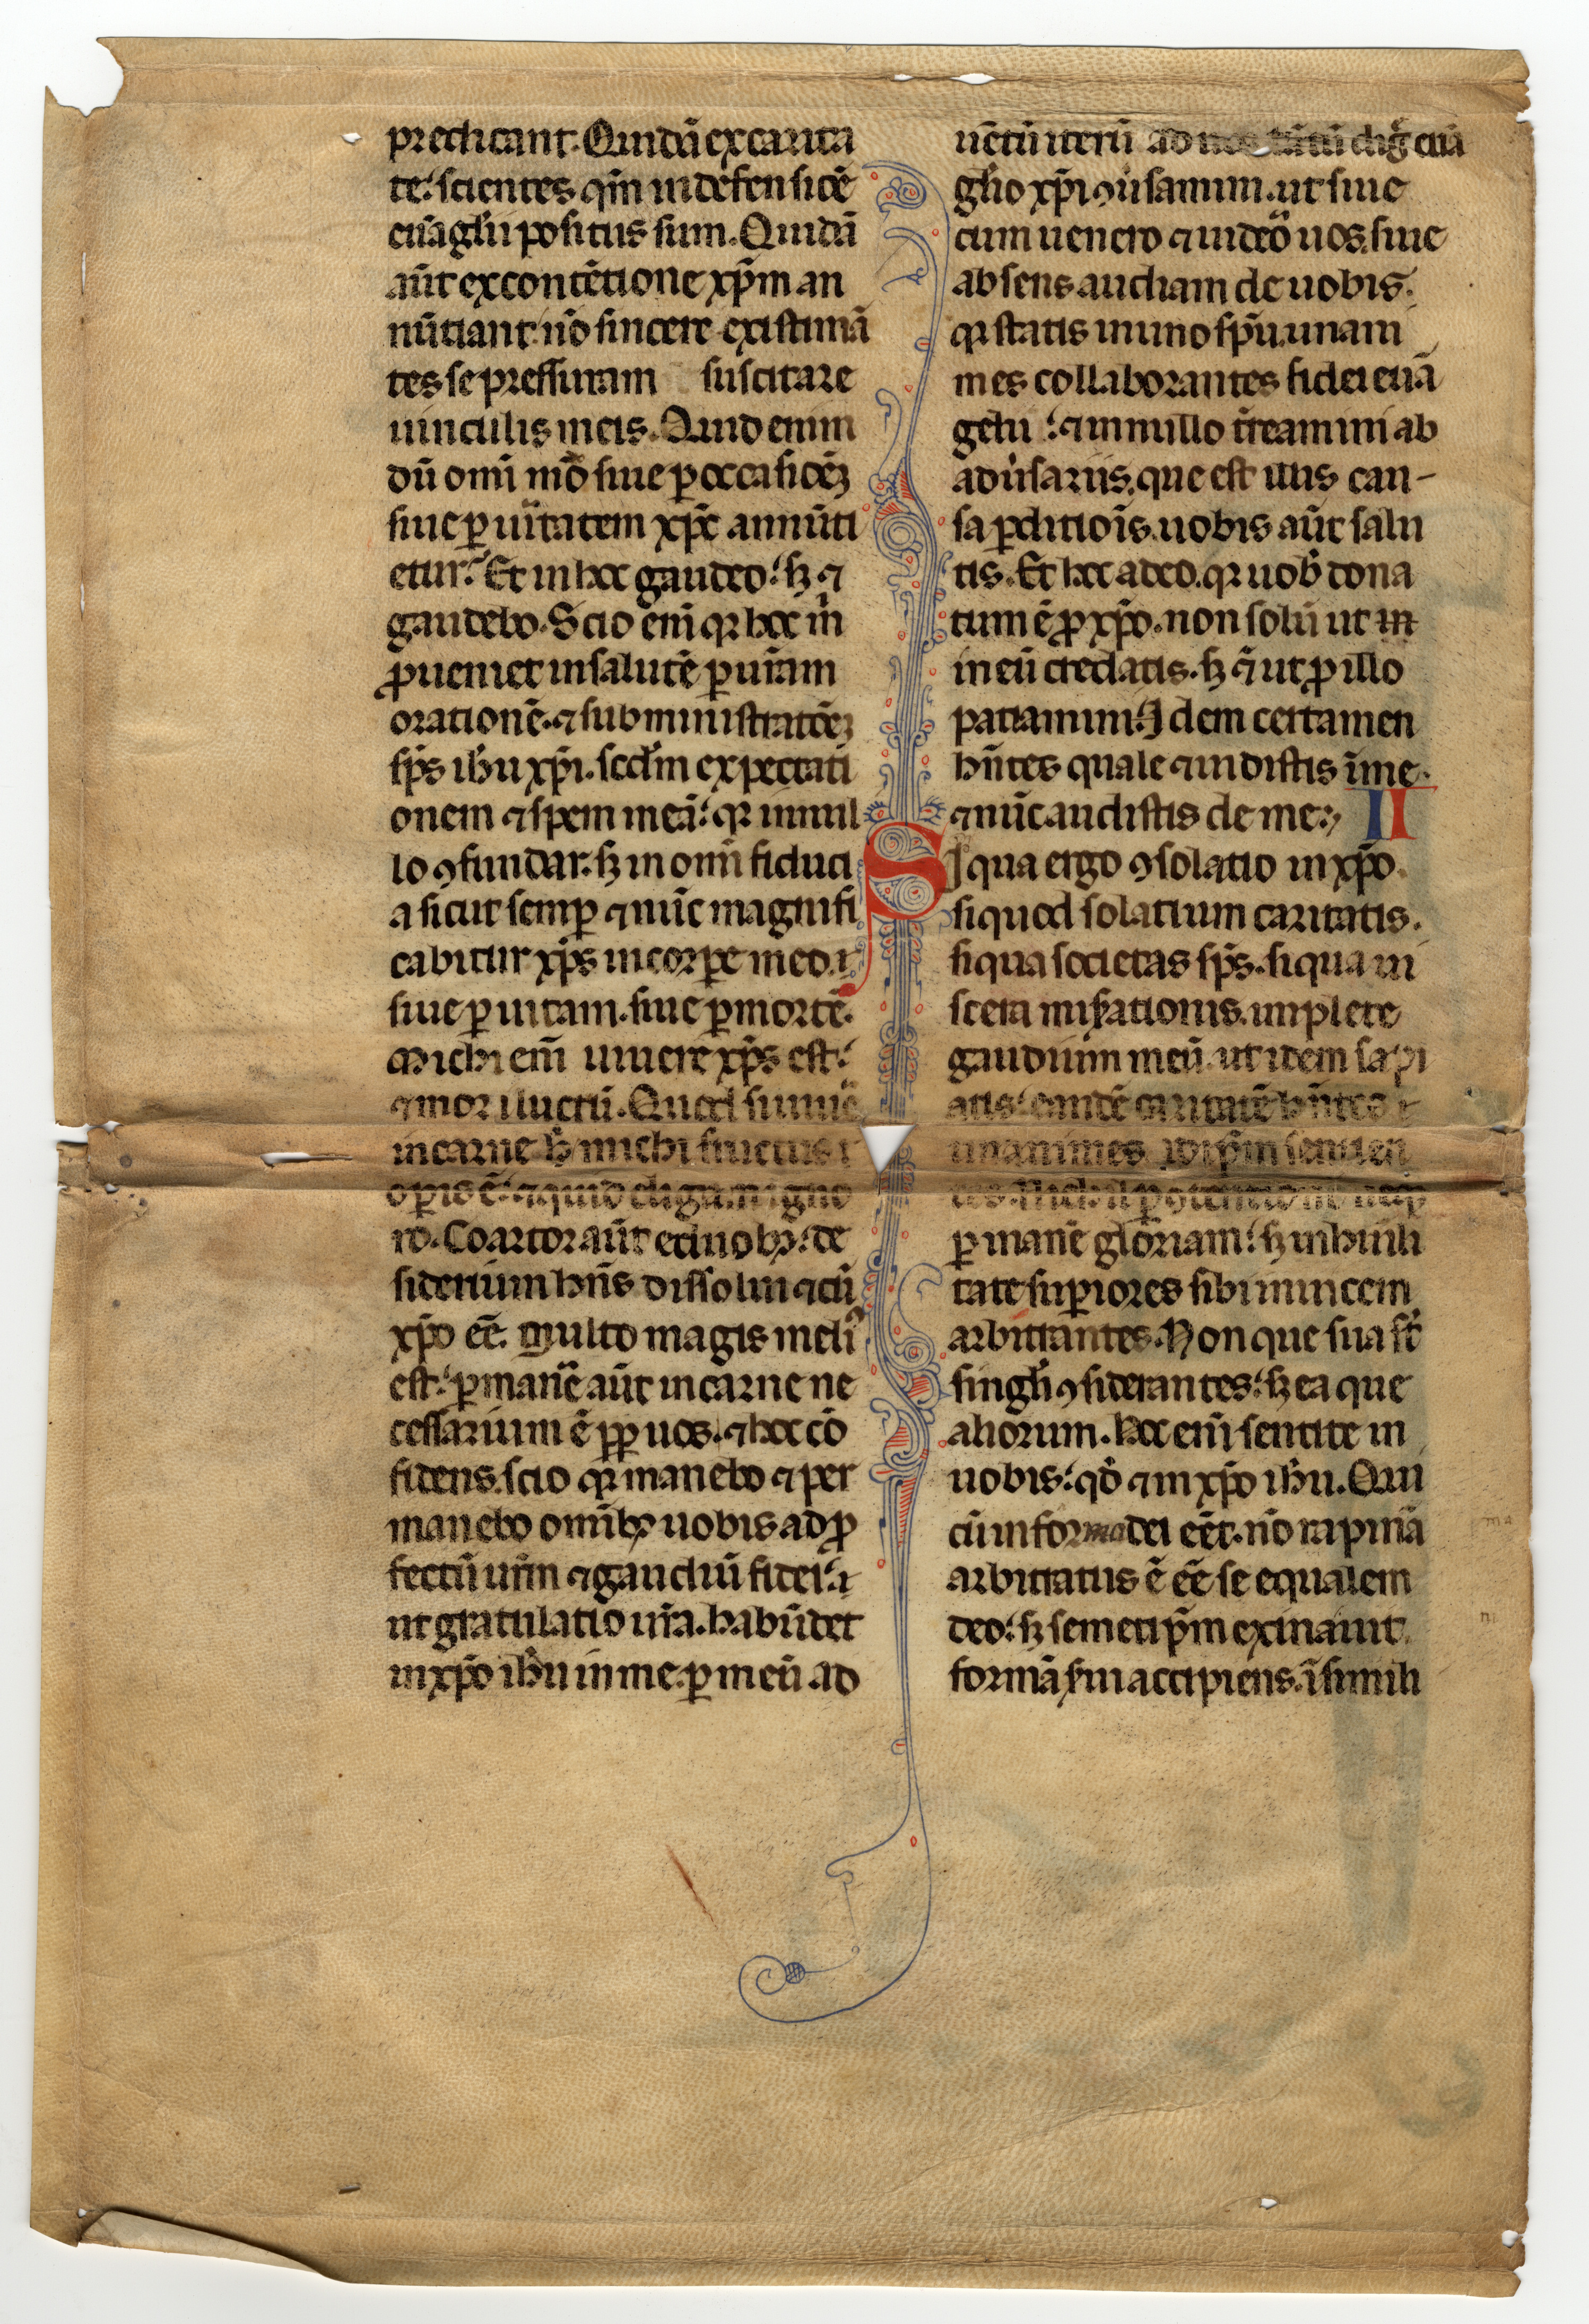 predicant. Quidā ex carita
te: scientes qm̄ in defensiōē
euāglii positus sum. Quidā
aūt ex contētione xp̄m an
nūtiant: nō sincere existimā
tes se pressuram suscitare
uinculis meis. Quid enim
dū omī mō siue ꝑ occasiōēꝫ
siue ꝑ uītatem xp̄c annūti
etur: Et in hoc gaudeo: sꝫ ⁊
gaudebo. Scio enī qꝛ hoc m̄
ꝓueniet in salutē ꝑ urām
orationē. ⁊ subministratōēꝫ
sp̄s ih̄u xp̄i. secd̄m expectati
onem ⁊ spem meā: qꝛ in nul
lo ꝯfundar: sꝫ in omī fiduci
a sicut semꝑ ⁊ nūc magnifi
cabitur xp̄s in corꝑe meo. ⁊
siue ꝑ uitam. siue ꝑ mortē.
Michi em̄ uiuere xp̄s est:
⁊ mori lucrū. Quod si uiuē
in carne h̄ michi fructus
oꝑis ē: ⁊ quid eligam igno
ro. Coartor aūt e duobꝫ: de
siderium hn̄s dissolui ⁊ cū
xp̄o eē. multo magis meliꝰ
est: ꝑmanē aūt in carne ne
cessarium ē ꝓp̄ uos. ⁊ hoc cō
fidens. scio qꝛ manebo ⁊ per
manebo omībꝫ uobis ad ꝓ
fectū urm̄ ⁊ gaudiū fidei:
ut gratulatio urā. habūdet
in xp̄o ih̄u in me. ꝑ meū ad
uētū iterū ad uos tm̄ dig̊ euā
glio xp̄i ꝯūsamini. ut siue
cum uenero ⁊ uideo uos. siue
absens audiam de uobis.
qꝛ statis in uno sp̄u. unani
mes collaborantes fidei euā
gelii : ⁊ in nullo t̄reamini ab
adūsariis. que est illis cau-
sa ꝑditiōis. uobis aūt salu
tis. Et hoc a deo. qꝛ uob̄ dona
tum ē ꝓ xp̄o. non solū ut in
in eū credatis. sꝫ ⁊ ut ꝓ illo
patiamini. Idem certamen
hn̄tes quale ⁊ uidistis ī me.
⁊ nūc audistis de me: II
Si qua ergo ꝯsolatio in xp̄o.
si quod solatium caritatis.
si qua societas sp̄s. si qua ui
scera misʼationis. implete
gaudium meū. ut idem sapi
atis: eandē caritatē hn̄tes
unanimes idip̄m sentien
tes. Nichil ꝑ ꝯtentionē neqꝫ
ꝑ inanē gloriam: sꝫ in humili
tate suꝑiores sibi inuicem
arbitrantes. Non que sua st̄
singli ꝯsiderantes: sꝫ ea que
aliorum. Hoc enī sentite in
uobis: qd̄ ⁊ in xp̄o ih̄u. Qui
cū in forma dei eēt. nō rapinā
arbitratus ē eē se equalem
deo: sꝫ semetip̄m exinaiuit
formā sʼui accipiens. ī simili